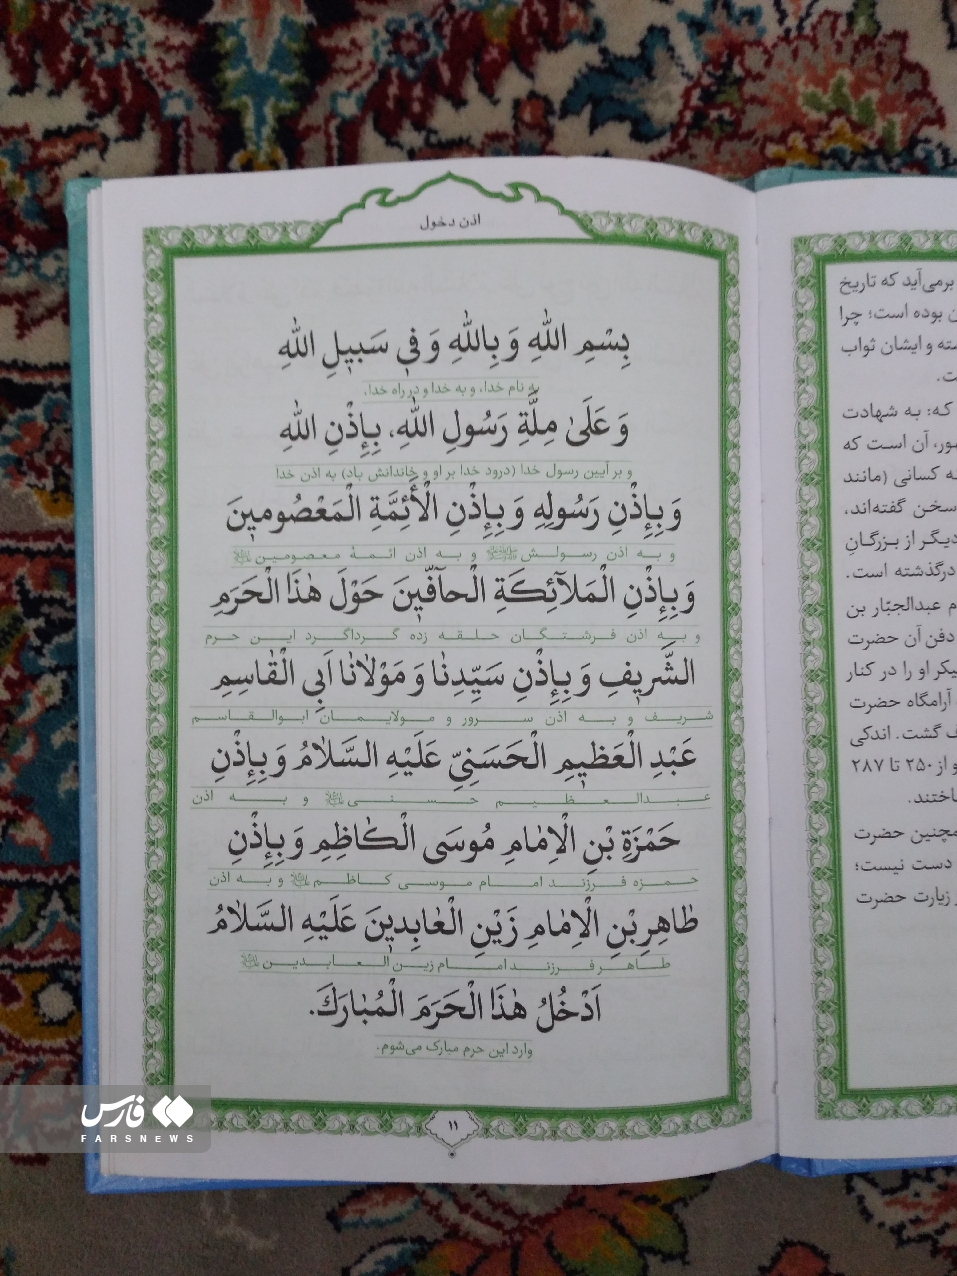 اذن دخول
بِسْمِ اللّٰهِ وَ بِاللّٰهِ وَ فِی سَبیٖلِ اللّٰهِ
به نام خدا، و به خدا و در راه خدا،
وَ عَلَىٰ مِلَّةِ رَسُولِ اللّٰهِ، بِإِذْنِ اللّٰهِ
و بر آیین رسول خدا (درود خدا بر او و خاندانش باد) به اذن خدا
وَ بِإِذْنِ رَسُولِهِ وَ بِإِذْنِ الْأَئِمَّةِ الْمَعْصُومیٖنَ
و به اذن رسولش ﷺ و به اذن ائمهٔ معصومین
وَ بِإِذْنِ الْمَلآئِکَةِ الْحآفّیٖنَ حَوْلَ هٰذَا الْحَرَمِ
و به اذن فرشتگان حلقه زده گرداگرد این حرم
الشَّریٖفِ وَ بِإِذْنِ سَیِّدِنٰا وَ مَوْلاٰنٰا اَبِی الْقٰاسِمِ
شریف و به اذن سرور و مولایمان ابوالقاسم
عَبْدِ الْعَظیٖمِ الْحَسَنِیِّ عَلَیْهِ السَّلاٰمُ وَ بِإِذْنِ
عبدالعظیم حسنی و به اذن
حَمْزَةِ بْنِ الْاِمٰامِ مُوسَی الْکٰاظِمِ وَ بِإِذْنِ
حمزه فرزند امام موسی کاظم و به اذن
طٰاهِرِ بْنِ الْاِمٰامِ زَیْنِ الْعٰابِدیٖنَ عَلَیْهِ السَّلاٰمُ
طاهر فرزند امام زین العابدین
اَدْخُلُ هٰذَا الْحَرَمَ الْمُبٰارَکَ.
وارد این حرم مبارک می‌شوم.
۱۱
برمی‌آید که تاریخ
بوده است؛ چرا
و ایشان ثواب
که: به شهادت
آن است که
کسانی (مانند
سخن گفته‌اند،
دیگر از بزرگانِ
درگذشته است.
عبدالجبّار بن
دفن آن حضرت
پیکر او را در کنار
آرامگاه حضرت
گشت. اندکی
و از ۲۵۰ تا ۲۸۷
همچنین حضرت
دست نیست؛
زیارت حضرت
فارس
FARSNEWS